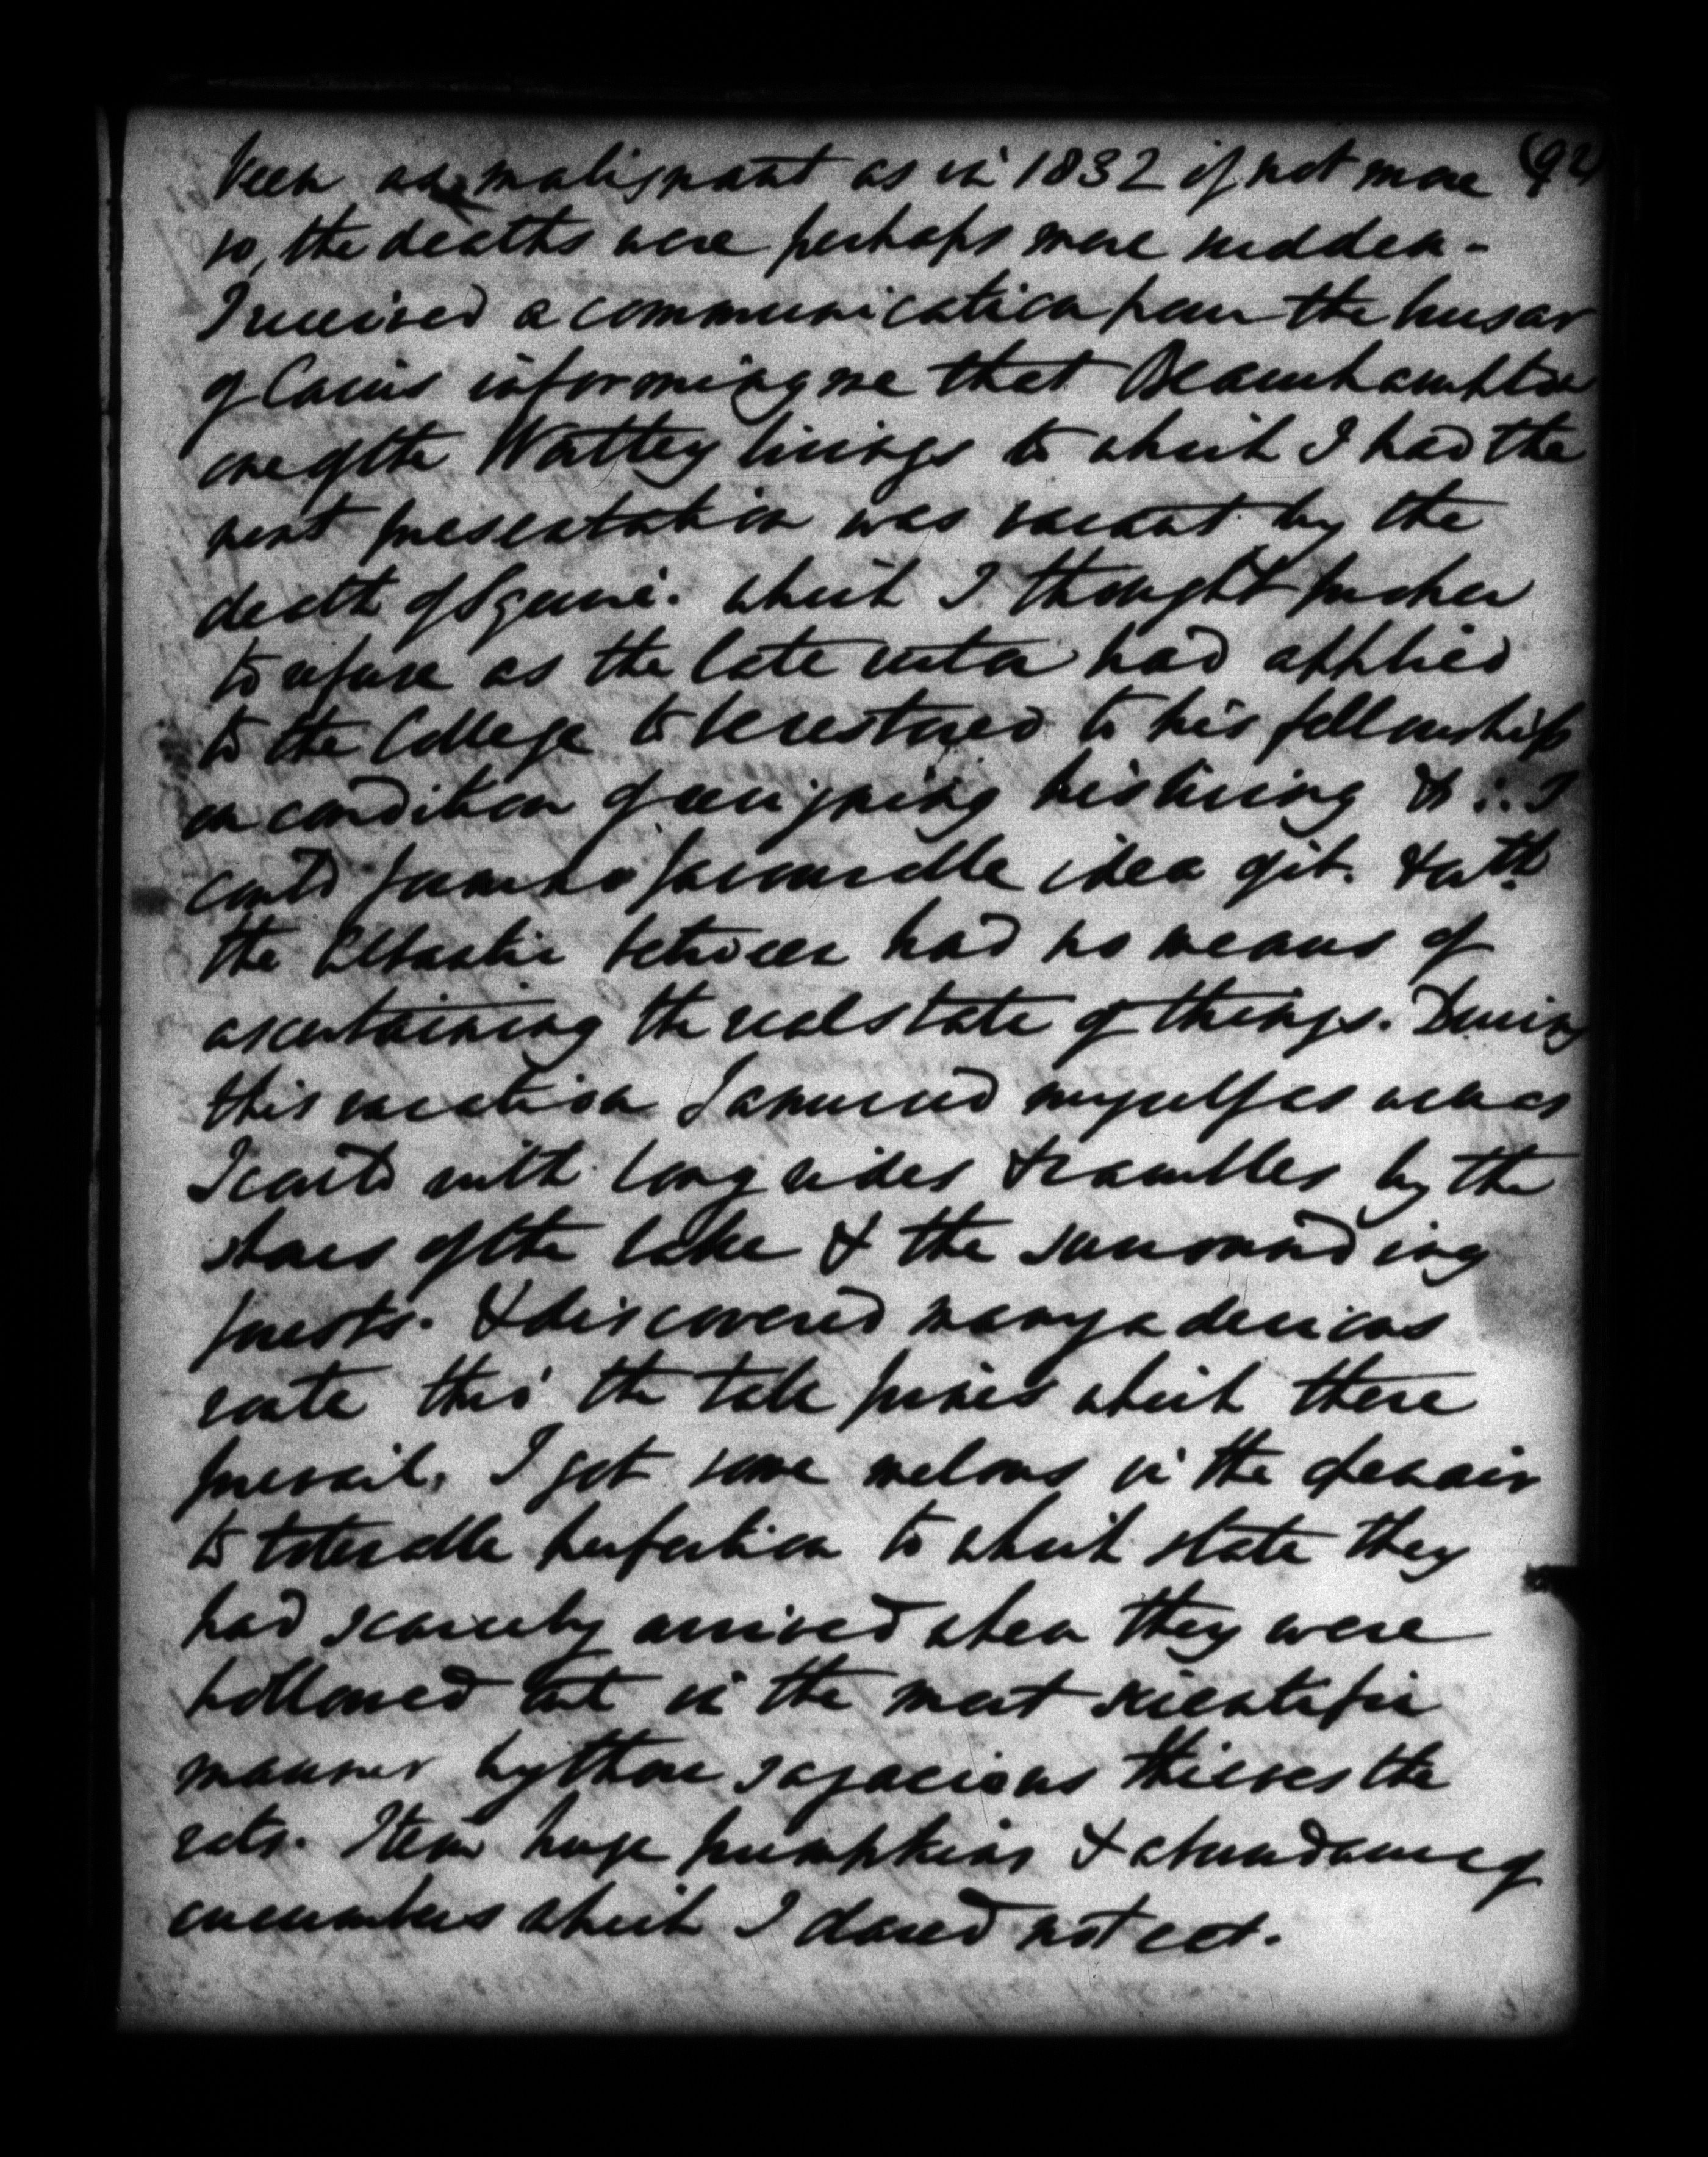 (92)
been as malignant as in 1832 if not more
so, the deaths were perhaps more sudden -
I received a communication from the bursar
of Caius informing me that Beauchampton
one of the Wortley livings to which I had the
next presentation was vacant by the
death of Squire. which I thought proper
to refuse as the late rector had applied
to the College to be restored to his fellowship
on condition of resigning his living & ∴ I
could form no favourable idea of it. & with
the Atlantic between had no means of
ascertaining the real state of things. During
this vacation I amused myself as well as
I could with long rides & rambles by the
shores of the lake & the surrounding
forests. & discovered many a delicious
route thro' the tall pines which there
prevail. I got some melons in the open air
to tolerable perfection to which state they
had scarcely arrived when they were
hollowed out in the most scientific
manner by those sagacious thieves the
rats. Item huge pumpkins & abundance of
cucumbers which I dared not eat.